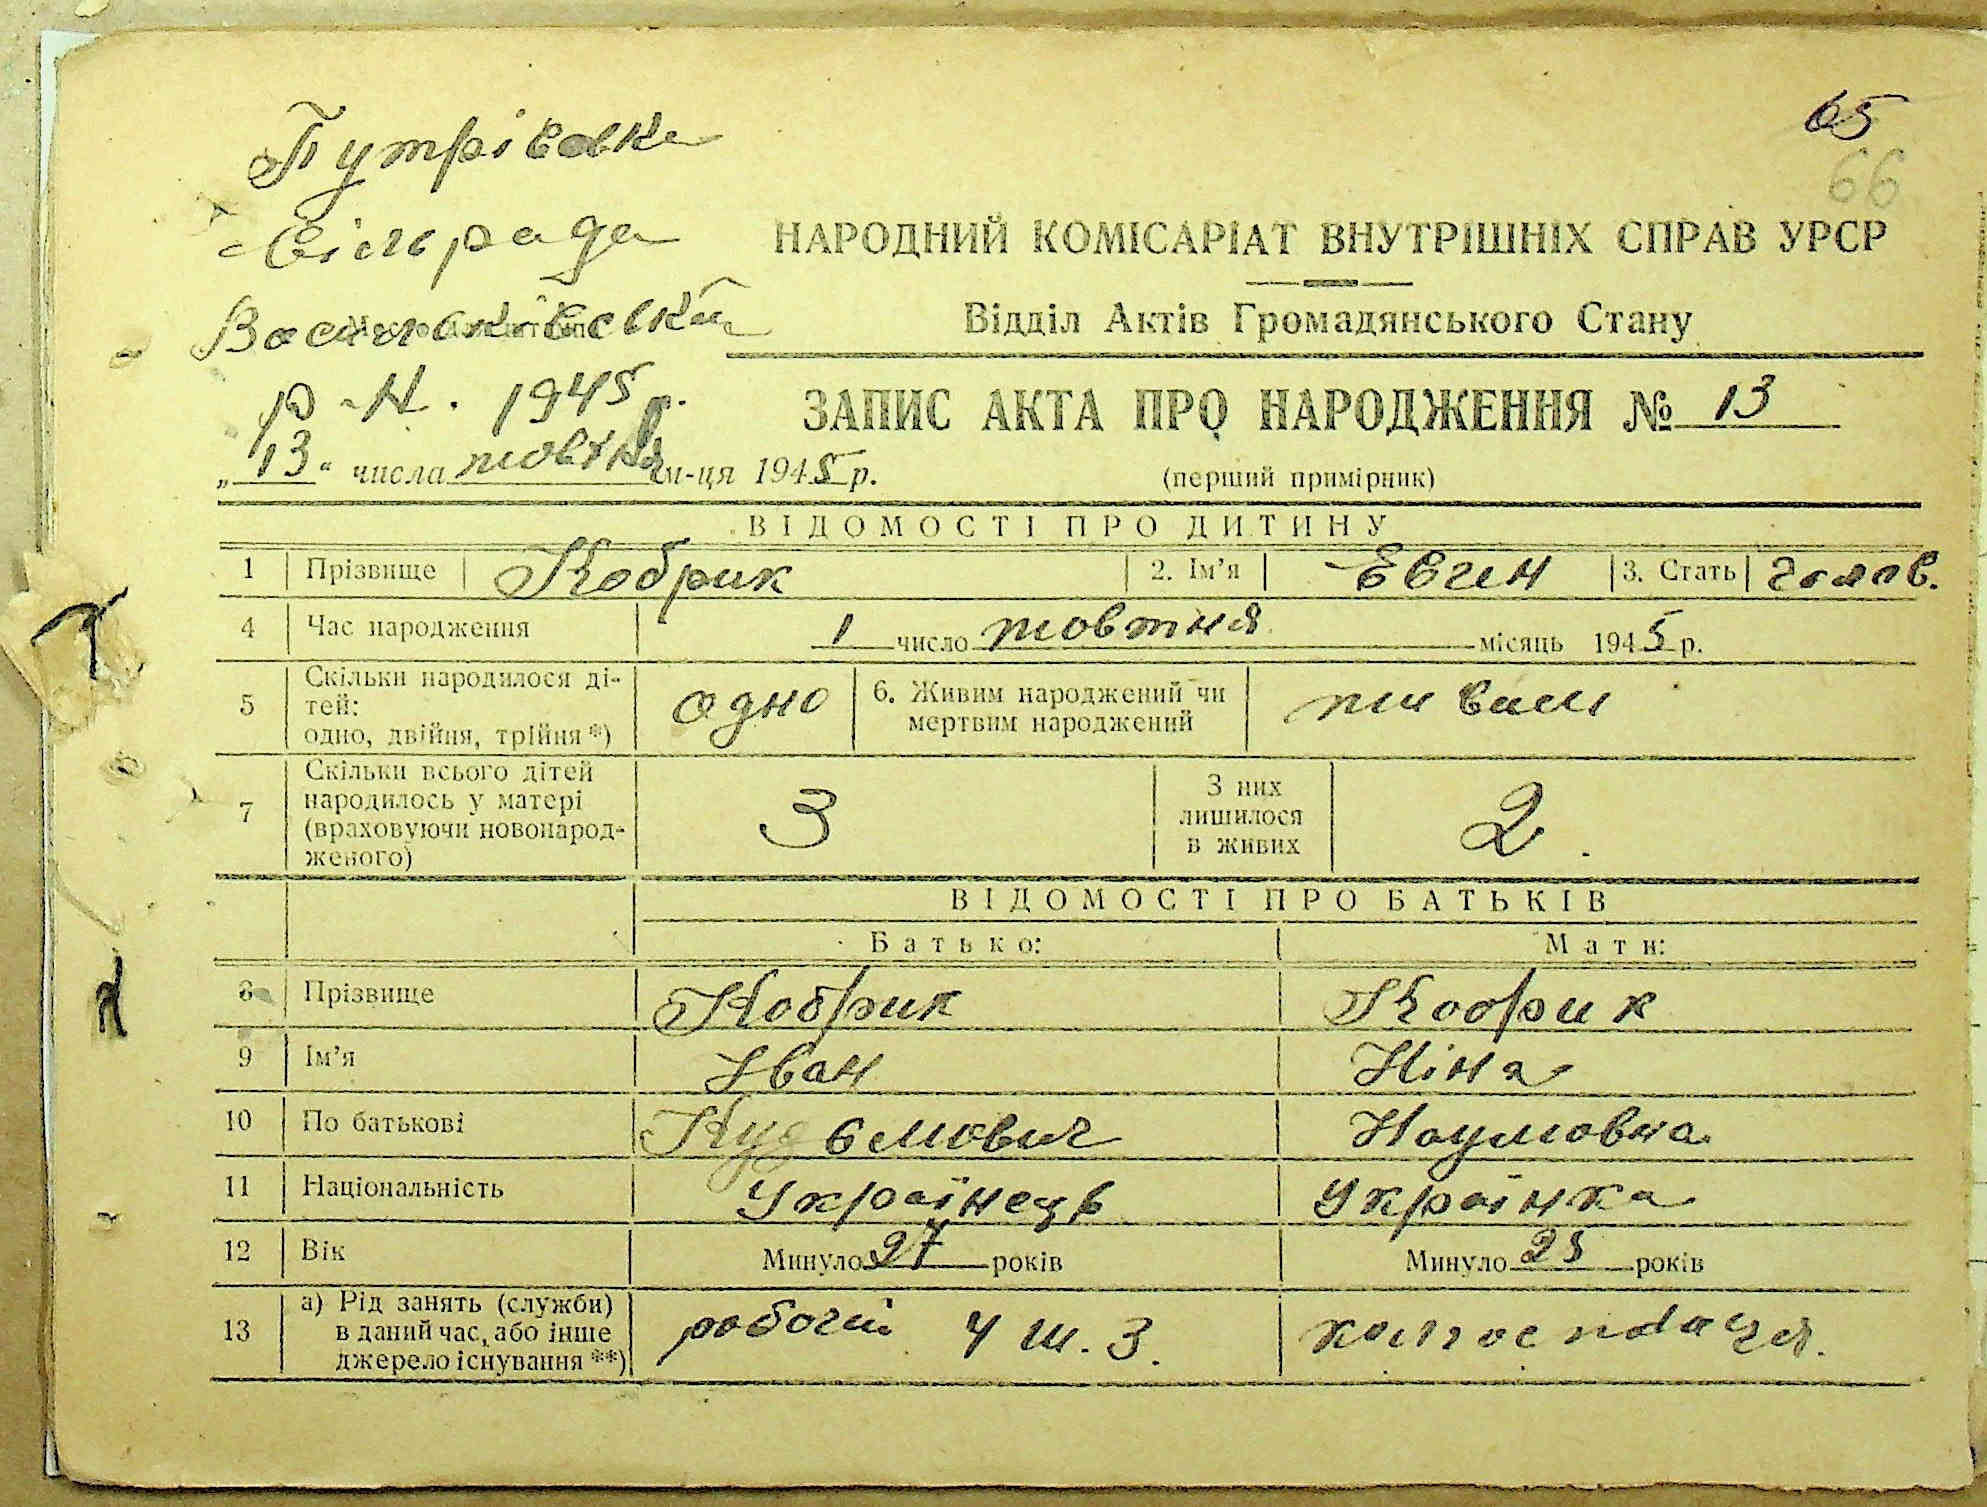 65
66
Путрівська
Сільрада
Васильківськ
Р-Н. 1945 р.
НАРОДНИЙ КОМІСАРІАТ ВНУТРІШНІХ СПРАВ УРСР
Відділ Актів Громадянського Стану
ЗАПИС АКТА ПРО НАРОДЖЕННЯ № 13
„13“ числа жовтня м-ця 1945 р.
(перший примірник)
ВІДОМОСТІ ПРО ДИТИНУ
1 Прізвище Кобрик 2. Ім’я Евген 3. Стать чолов.
4 Час народження 1 число жовтня місяць 1945 р.
5 Скільки народилося ді-
тей:
одно, двійня, трійня *) одно 6. Живим народжений чи
мертвим народжений живим
7 Скільки всього дітей
народилось у матері
(враховуючи новонарод-
женого) 3 З них
лишилося
в живих 2.
ВІДОМОСТІ ПРО БАТЬКІВ
Батько: Мати:
8 Прізвище Кобрик Кобрик
9 Ім’я Іван Ніна
10 По батькові Наумовна
11 Національність Українець Українка
12 Вік Минуло 27 років Минуло 25 років
13 а) Рід занять (служби)
в даний час, або інше
джерело існування **) робочий ш. З.